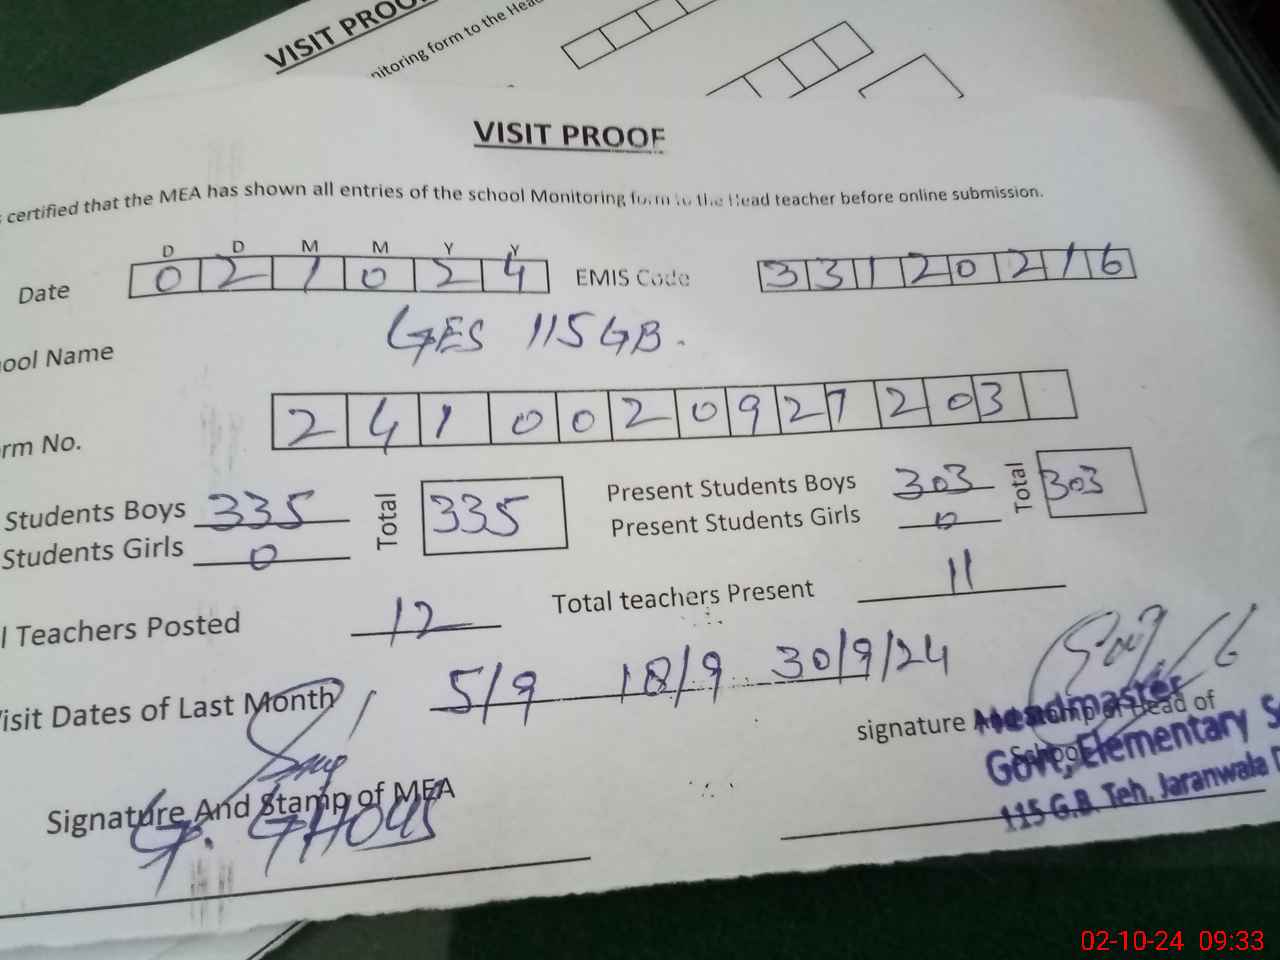 VISIT PROO
nitoring form to the Head
VISIT PROOF
certified that the MEA has shown all entries of the school Monitoring form to the Head teacher before online submission.
D D M M Y Y
Date 0 2 1 0 2 4 EMIS Code 3 3 1 2 0 2 1 6
ool Name GES 115 GB.
rm No. 2 4 1 0 0 2 0 9 2 7 2 0 3
Students Boys 335 Total 335 Present Students Boys 303 Total 303
Students Girls 0 Present Students Girls 0
l Teachers Posted 12 Total teachers Present 11
isit Dates of Last Month 5/9 18/9 30/9/24
signature And stamp of Head of
School
Headmaster
Govt; Elementary S
115 G.B. Teh. Jaranwala
Signature And Stamp of MEA
G. GHOUS
02-10-24 09:33